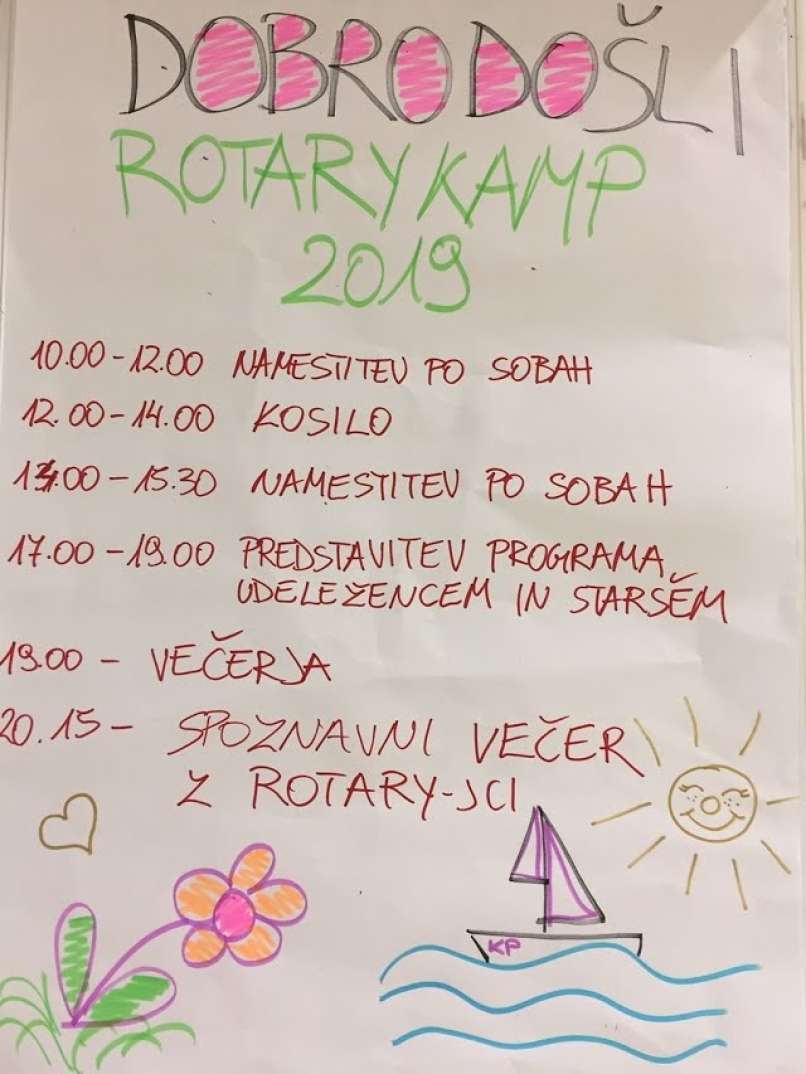 DOBRODOŠLI
ROTARY KAMP
2019
10.00-12.00 NAMESTITEV PO SOBAH
12.00-14.00 KOSILO
14.00-15.30 NAMESTITEV PO SOBAH
17.00-19.00 PREDSTAVITEV PROGRAMA
UDELEŽENCEM IN STARŠEM
19.00 - VEČERJA
20.15 - SPOZNAVNI VEČER
Z ROTARY-JCI
KP